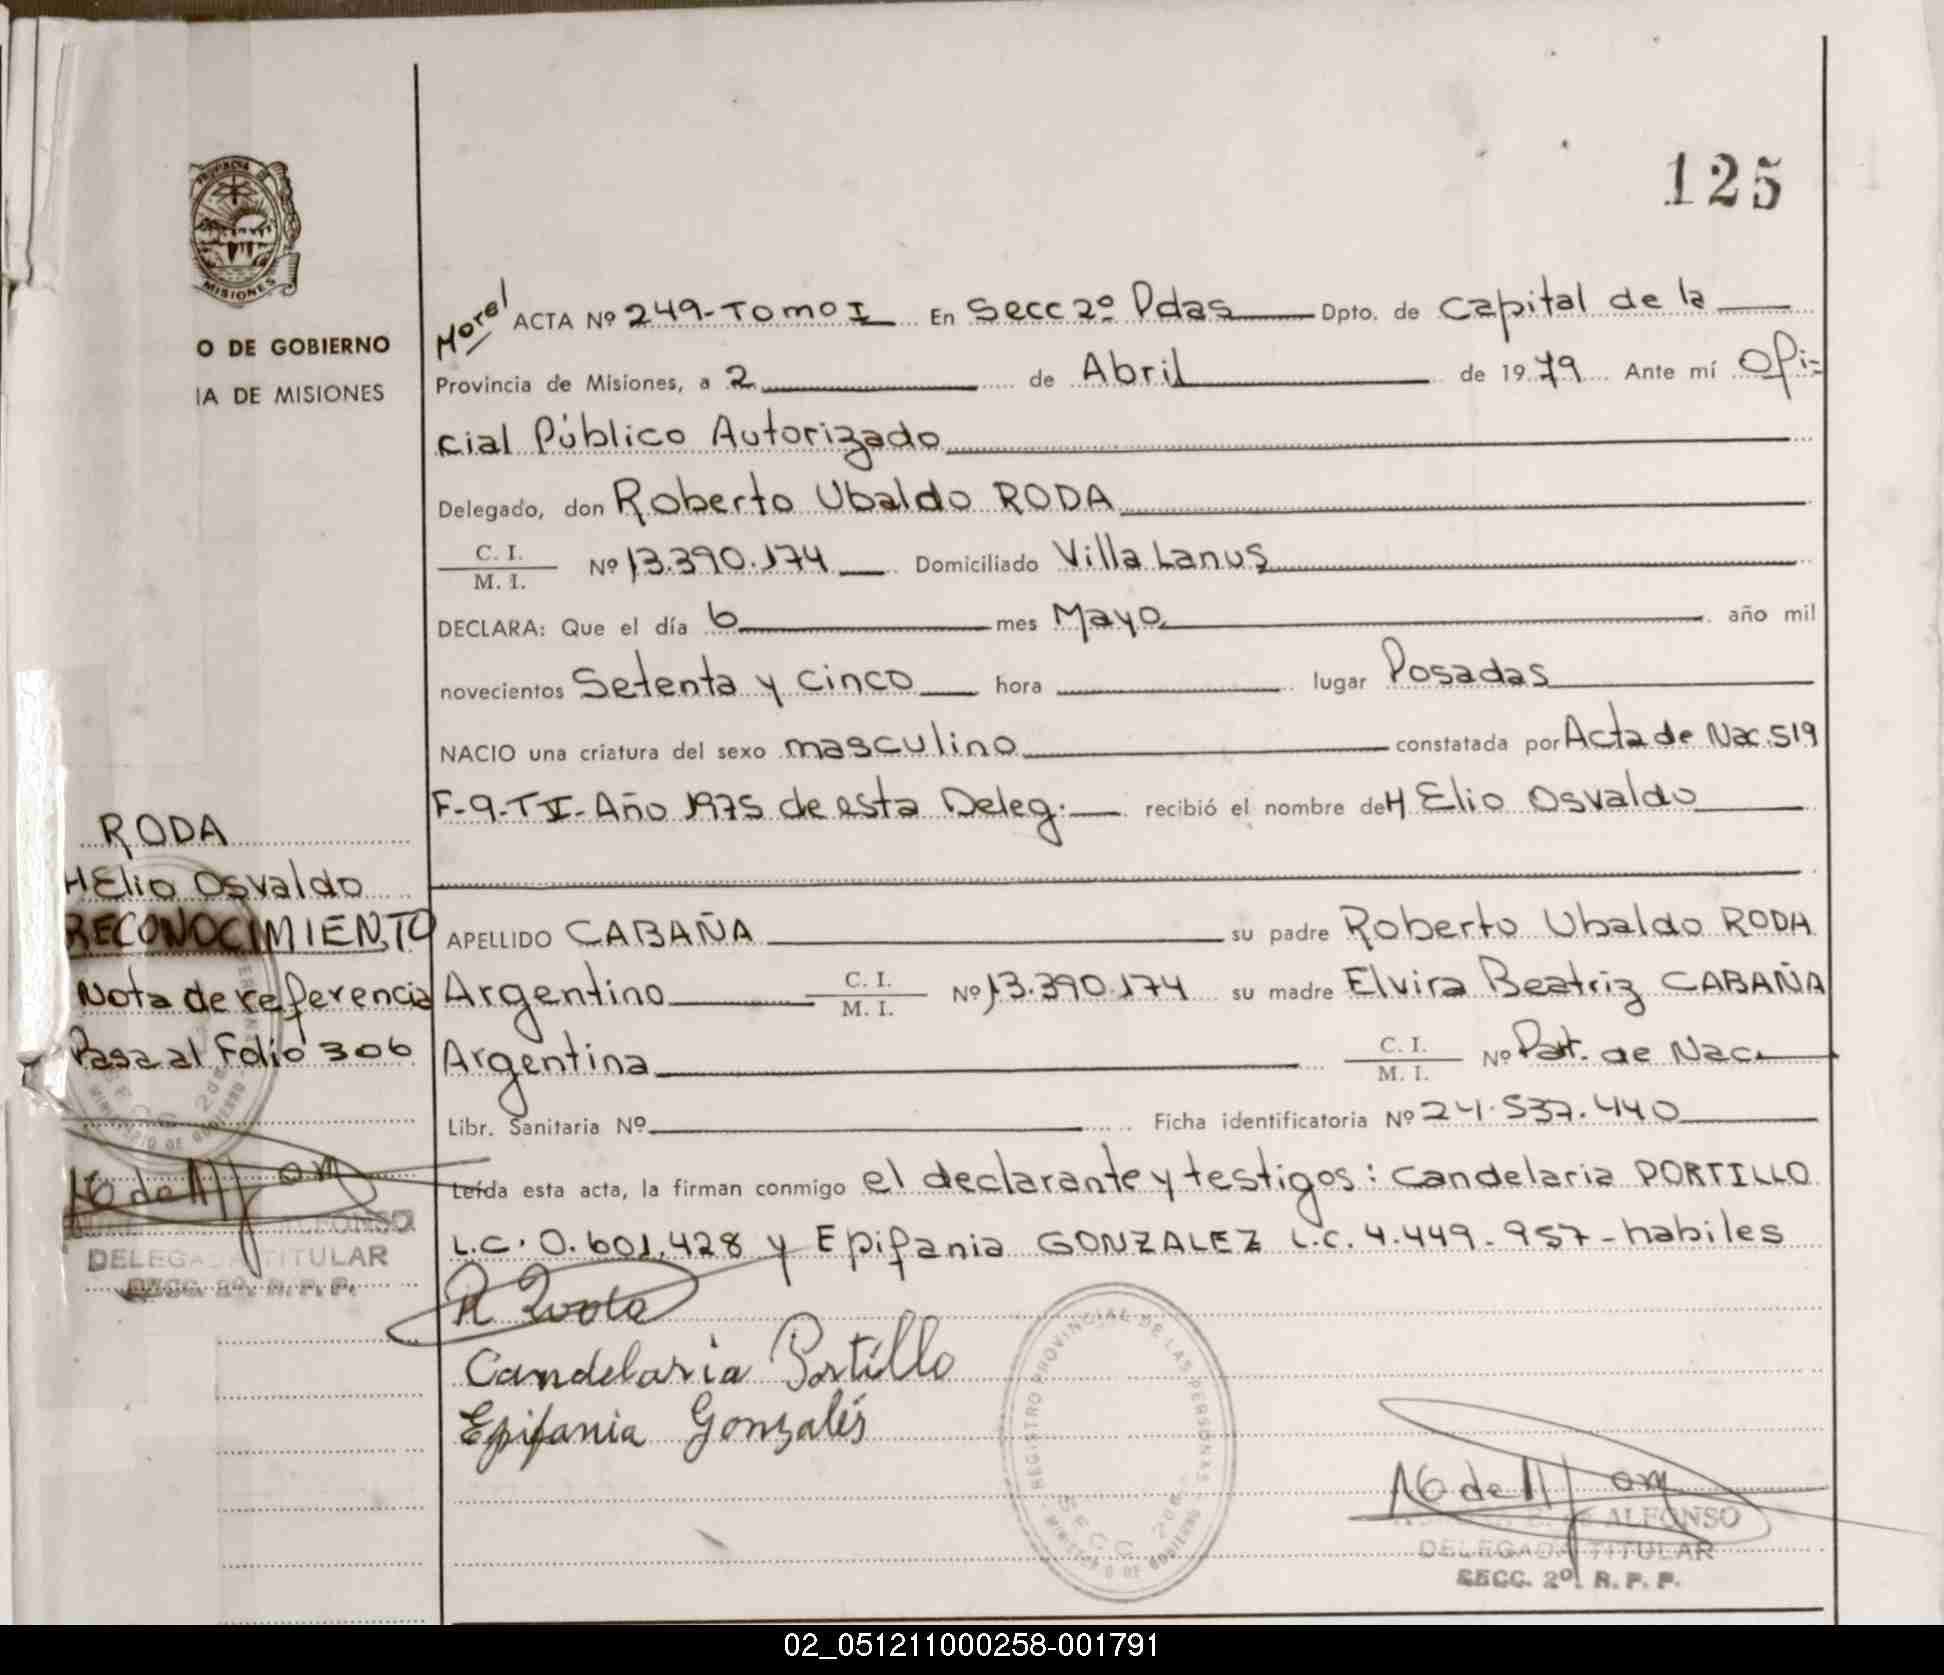 125
PROVINCIA DE
MISIONES
O DE GOBIERNO
IA DE MISIONES
Morel ACTA Nº 249-Tomo I En Secc 2º Pdas Dpto. de Capital de la
Provincia de Misiones, a 2 de Abril de 1979 Ante mí Ofi-
cial Público Autorizado
Delegado, don Roberto Ubaldo RODA
C. I.
M. I. Nº 13.390.174 Domiciliado Villa Lanus
DECLARA: Que el día 6 mes Mayo año mil
novecientos Setenta y cinco hora lugar Posadas
NACIO una criatura del sexo masculino constatada por Acta de Nac. 519
F-9-T V- Año 1975 de esta Deleg. recibió el nombre de HElio Osvaldo
APELLIDO CABAÑA su padre Roberto Ubaldo RODA
Argentino C. I. M. I. Nº 13.390.174 su madre Elvira Beatriz CABAÑA
Argentina C. I. M. I. Nº Part. de Nac.
Libr. Sanitaria Nº Ficha identificatoria Nº 24.537.440
Leída esta acta, la firman conmigo el declarante y testigos: Candelaria PORTILLO
L.C. 0.601.428 y Epifania GONZALEZ L.C. 4.449.957-habiles
R Roda
Candelaria Portillo
Epifania Gonzalés
REGISTRO PROVINCIAL DE LAS PERSONAS
SECC 2da
MINISTERIO DE GOBIERNO
ALFONSO
DELEGADA TITULAR
SECC. 2º. R. P. P.
RODA
HElio Osvaldo
RECONOCIMIENTO
Nota de referencia
Pasa al Folio 306
ALFONSO
DELEGADA TITULAR
SECC. 2º. R. P. P.
02_051211000258-001791